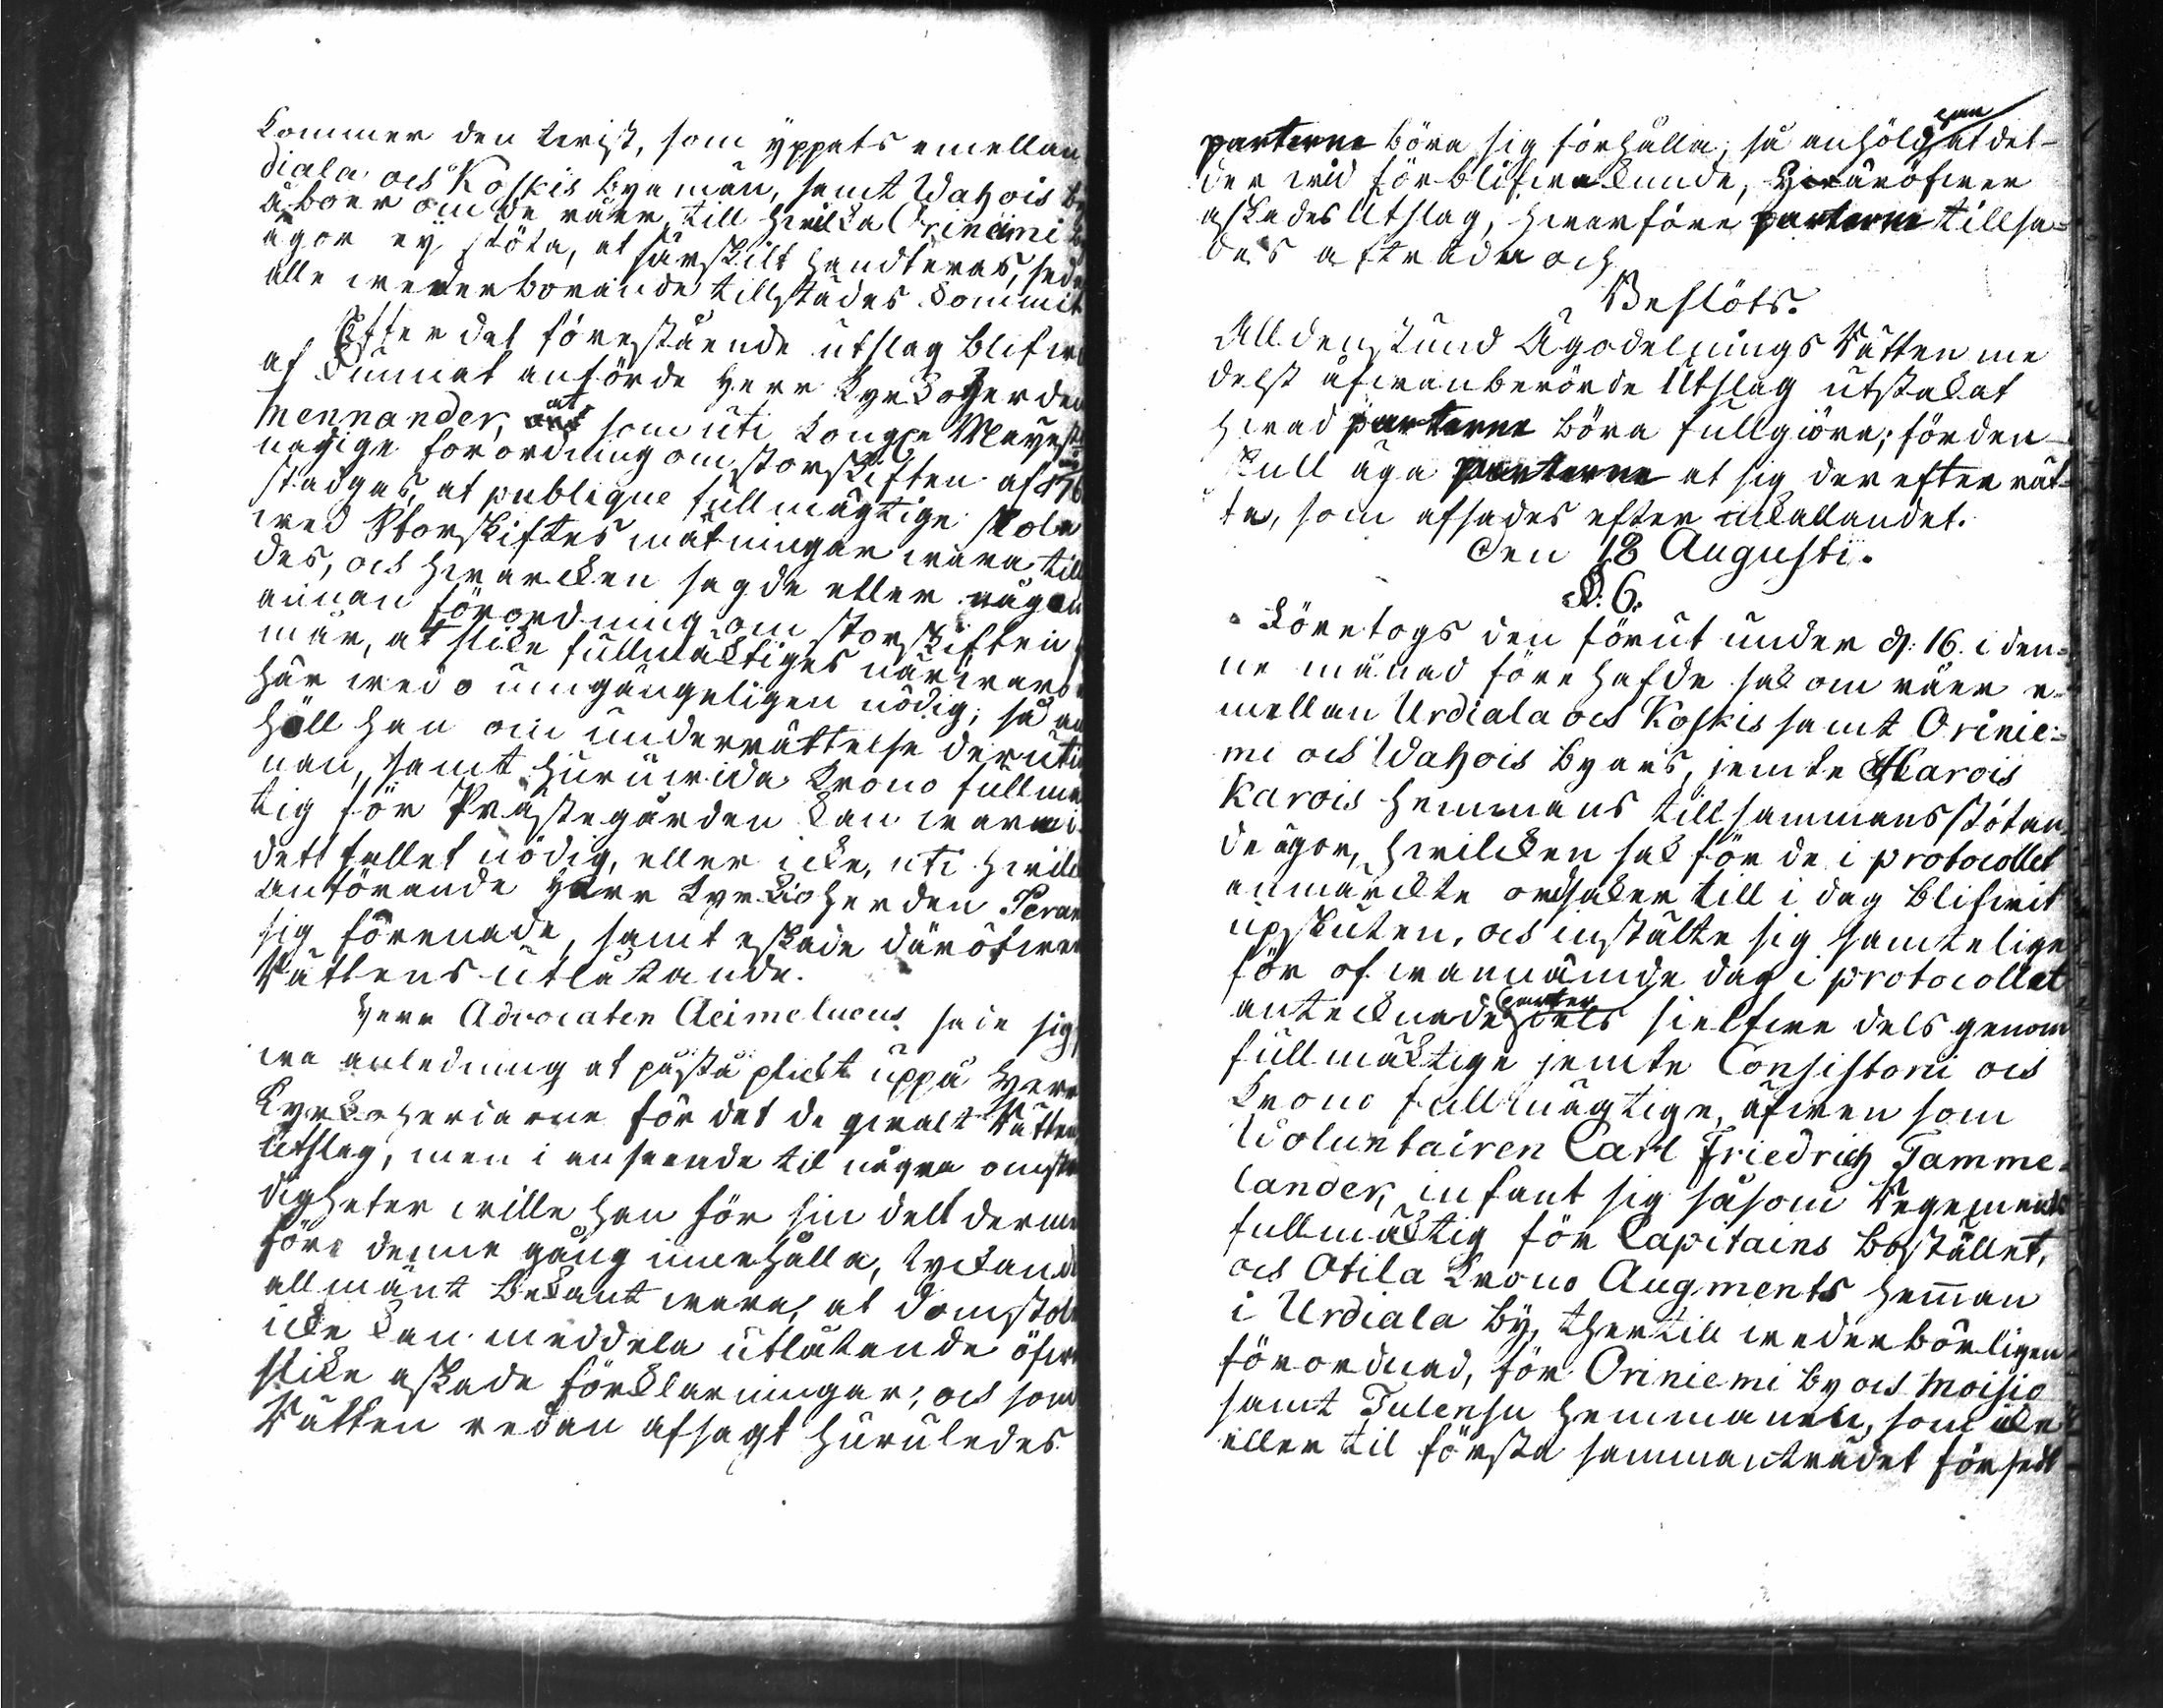 kommer den twist, som yppats emellan
diala och Koskis byamän, samt Wahois by
åboer om de råer, till hwilka Oriniemi by
ägor ey stöta, at särskilt handteras, seda
alle wederborande tillstädes kommit
Efter det förestående utslag blifwi
af kunnat anförde Herr Kyrkoherden
Mennander, at som uti Kongl Mayest
nådige förordning om storskiften af 176
stadgas, at publique fullmägtige skola
wed Storskiftes mätningar wara till
des, och hwarcken sagde eller någon
annan förordning om storskiften
mär, at slike fullmäktiges närwaro
här wed oumgängeligen nödig; så an
höll han om underrättelse deruti
nan, samt huruwida Krono fullmä
tig för Prästegården kan wara i
dett fallet nödig, eller icke, uti hwilk
anförande Herr Kyrkioherden Peran
sig förenade, samt äskade däröfwer
Rättens utlåtande.
Herr Advocaten Aeimelaeus sade sig
wa anledning at påstå plickt uppå Herr
Kyrkoherdarne för det de qwalt Rätten
Utslag, men i anseende til några omstä
digheter wille han för sin dell derme
före denne gång innehålla, tyckande
allmänt bekant wara, at domstol
icke kan meddela utlåtande öfwer
slike äskade förklarningar; och som
Rätten redan afsagt huruledes
parterne böra sig förhålla; så anhölg han at det
der wid förblifwa kunde, Hwaröfwer
äskades Utslag, hwarföre parterne tillsa=
des afträda och
Beslöts.
Alldenstund Ägodelnings Rätten me
delst åfwanberörde Utslag utstakat
hwad parterne böra fullgiöra; förden=
skull äga parterne at sig derefter rät=
ta, som afsades efter inkallandet.
Den 18 Augusti.
§. 6.
Företogs den förut under d. 16. i den=
ne månad förehafde sak om råer e=
mellan Urdiala och Koskis samt Orinie=
mi och Wahois byars, jemte Harois
Karois Hemmans tillsammansstötan
de ägor, hwilcken sak för de i protocollet
anmärckte orsaker till i dag blifwit
upskuten, och instälte sig samtelige
för ofwannämde dag i protocollet
antecknade parter dels sielfwe dels genom
fullmäktige jemte Consistorii och
Krono fullmägtige, äfwen som
Volontairen Carl Friedrich Tamme=
lander, infant sig såsom Regements
fullmäktig för Capitains bostället,
och Otila Krono Augments hemman
i Urdiala By, thertill wederbörligen
förordnad, för Oriniemi by och Moisio
samt Tulensu hemmanen, som icke
eller til första sammanträdet försedt